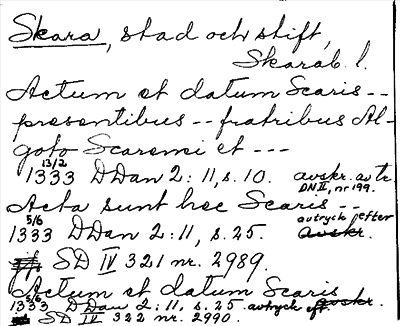 Skara, stad och stift,
Skarab. l.
Actum et datum Scaris --
presentibus -- fratribus Al-
goto Scarensi et ---
13/2
1333 DDan 2:11, s. 10. avskr. avtr.
DN II, nr 199.
Acta sunt hec Scaris --
5/6 avtryck efter
1333 DDan 2:11, s. 25. avskr.
SD IV 321 nr. 2989.
Actum et datum Scaris
5/6
1333 DDan 2:11, s. 25. avtryck eft. avskr.
SD IV 322 nr. 2990.